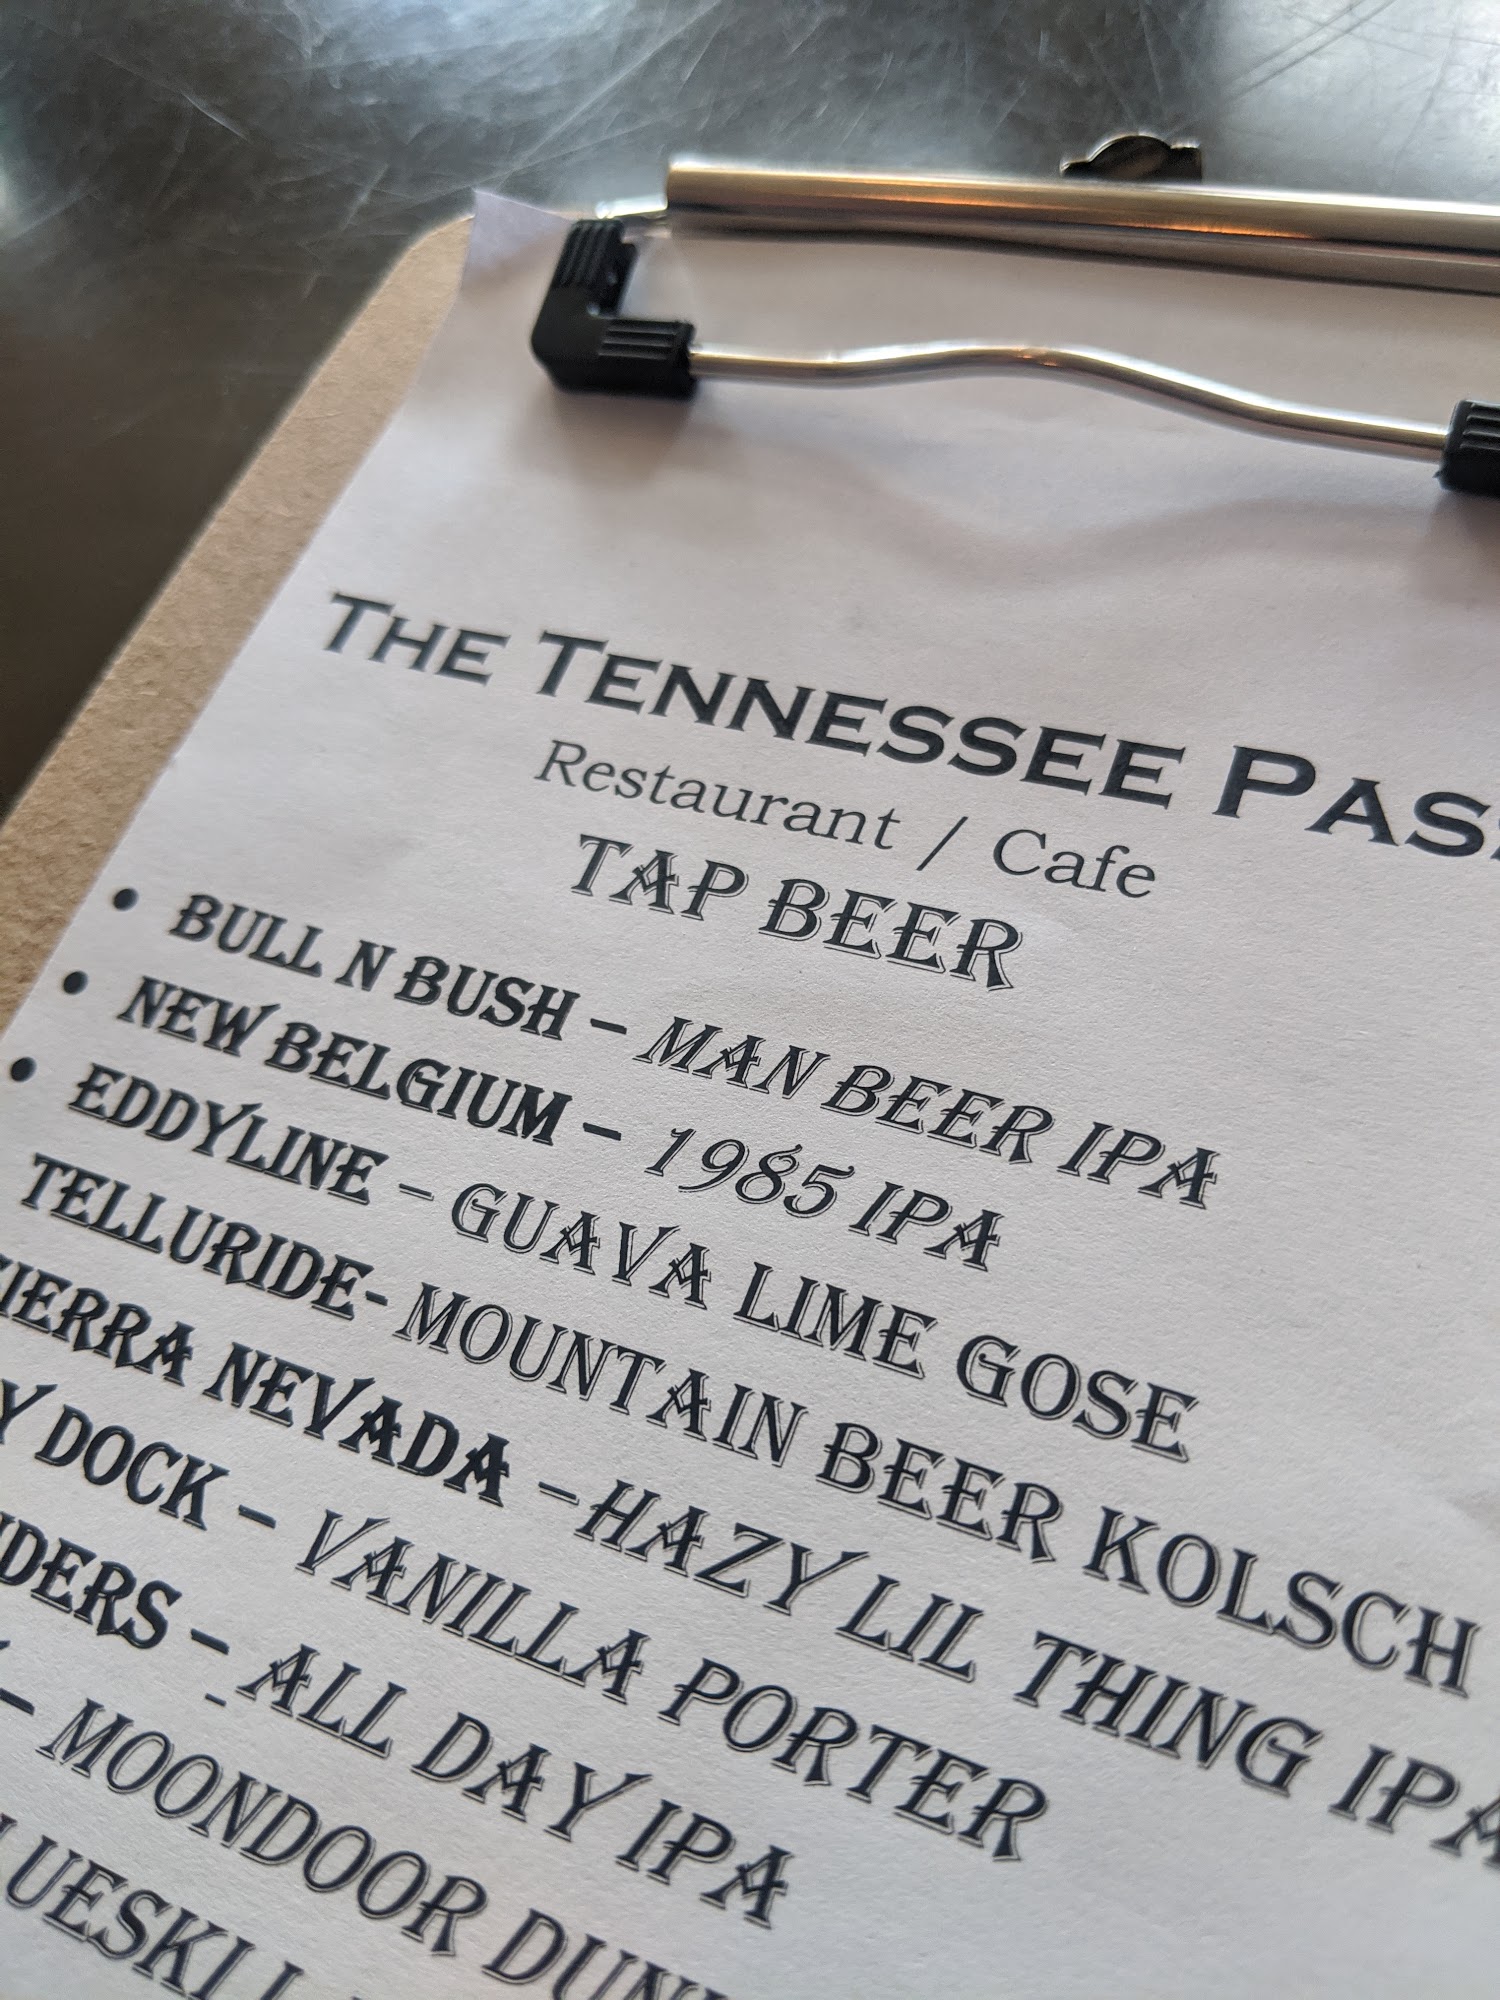 THE TENNESSEE PASS
Restaurant / Cafe
TAP BEER
• BULL N BUSH – MAN BEER IPA
• NEW BELGIUM – 1985 IPA
• EDDYLINE – GUAVA LIME GOSE
TELLURIDE- MOUNTAIN BEER KOLSCH
SIERRA NEVADA –HAZY LIL THING IPA
DOCK – VANILLA PORTER
– ALL DAY IPA
– MOONDOOR